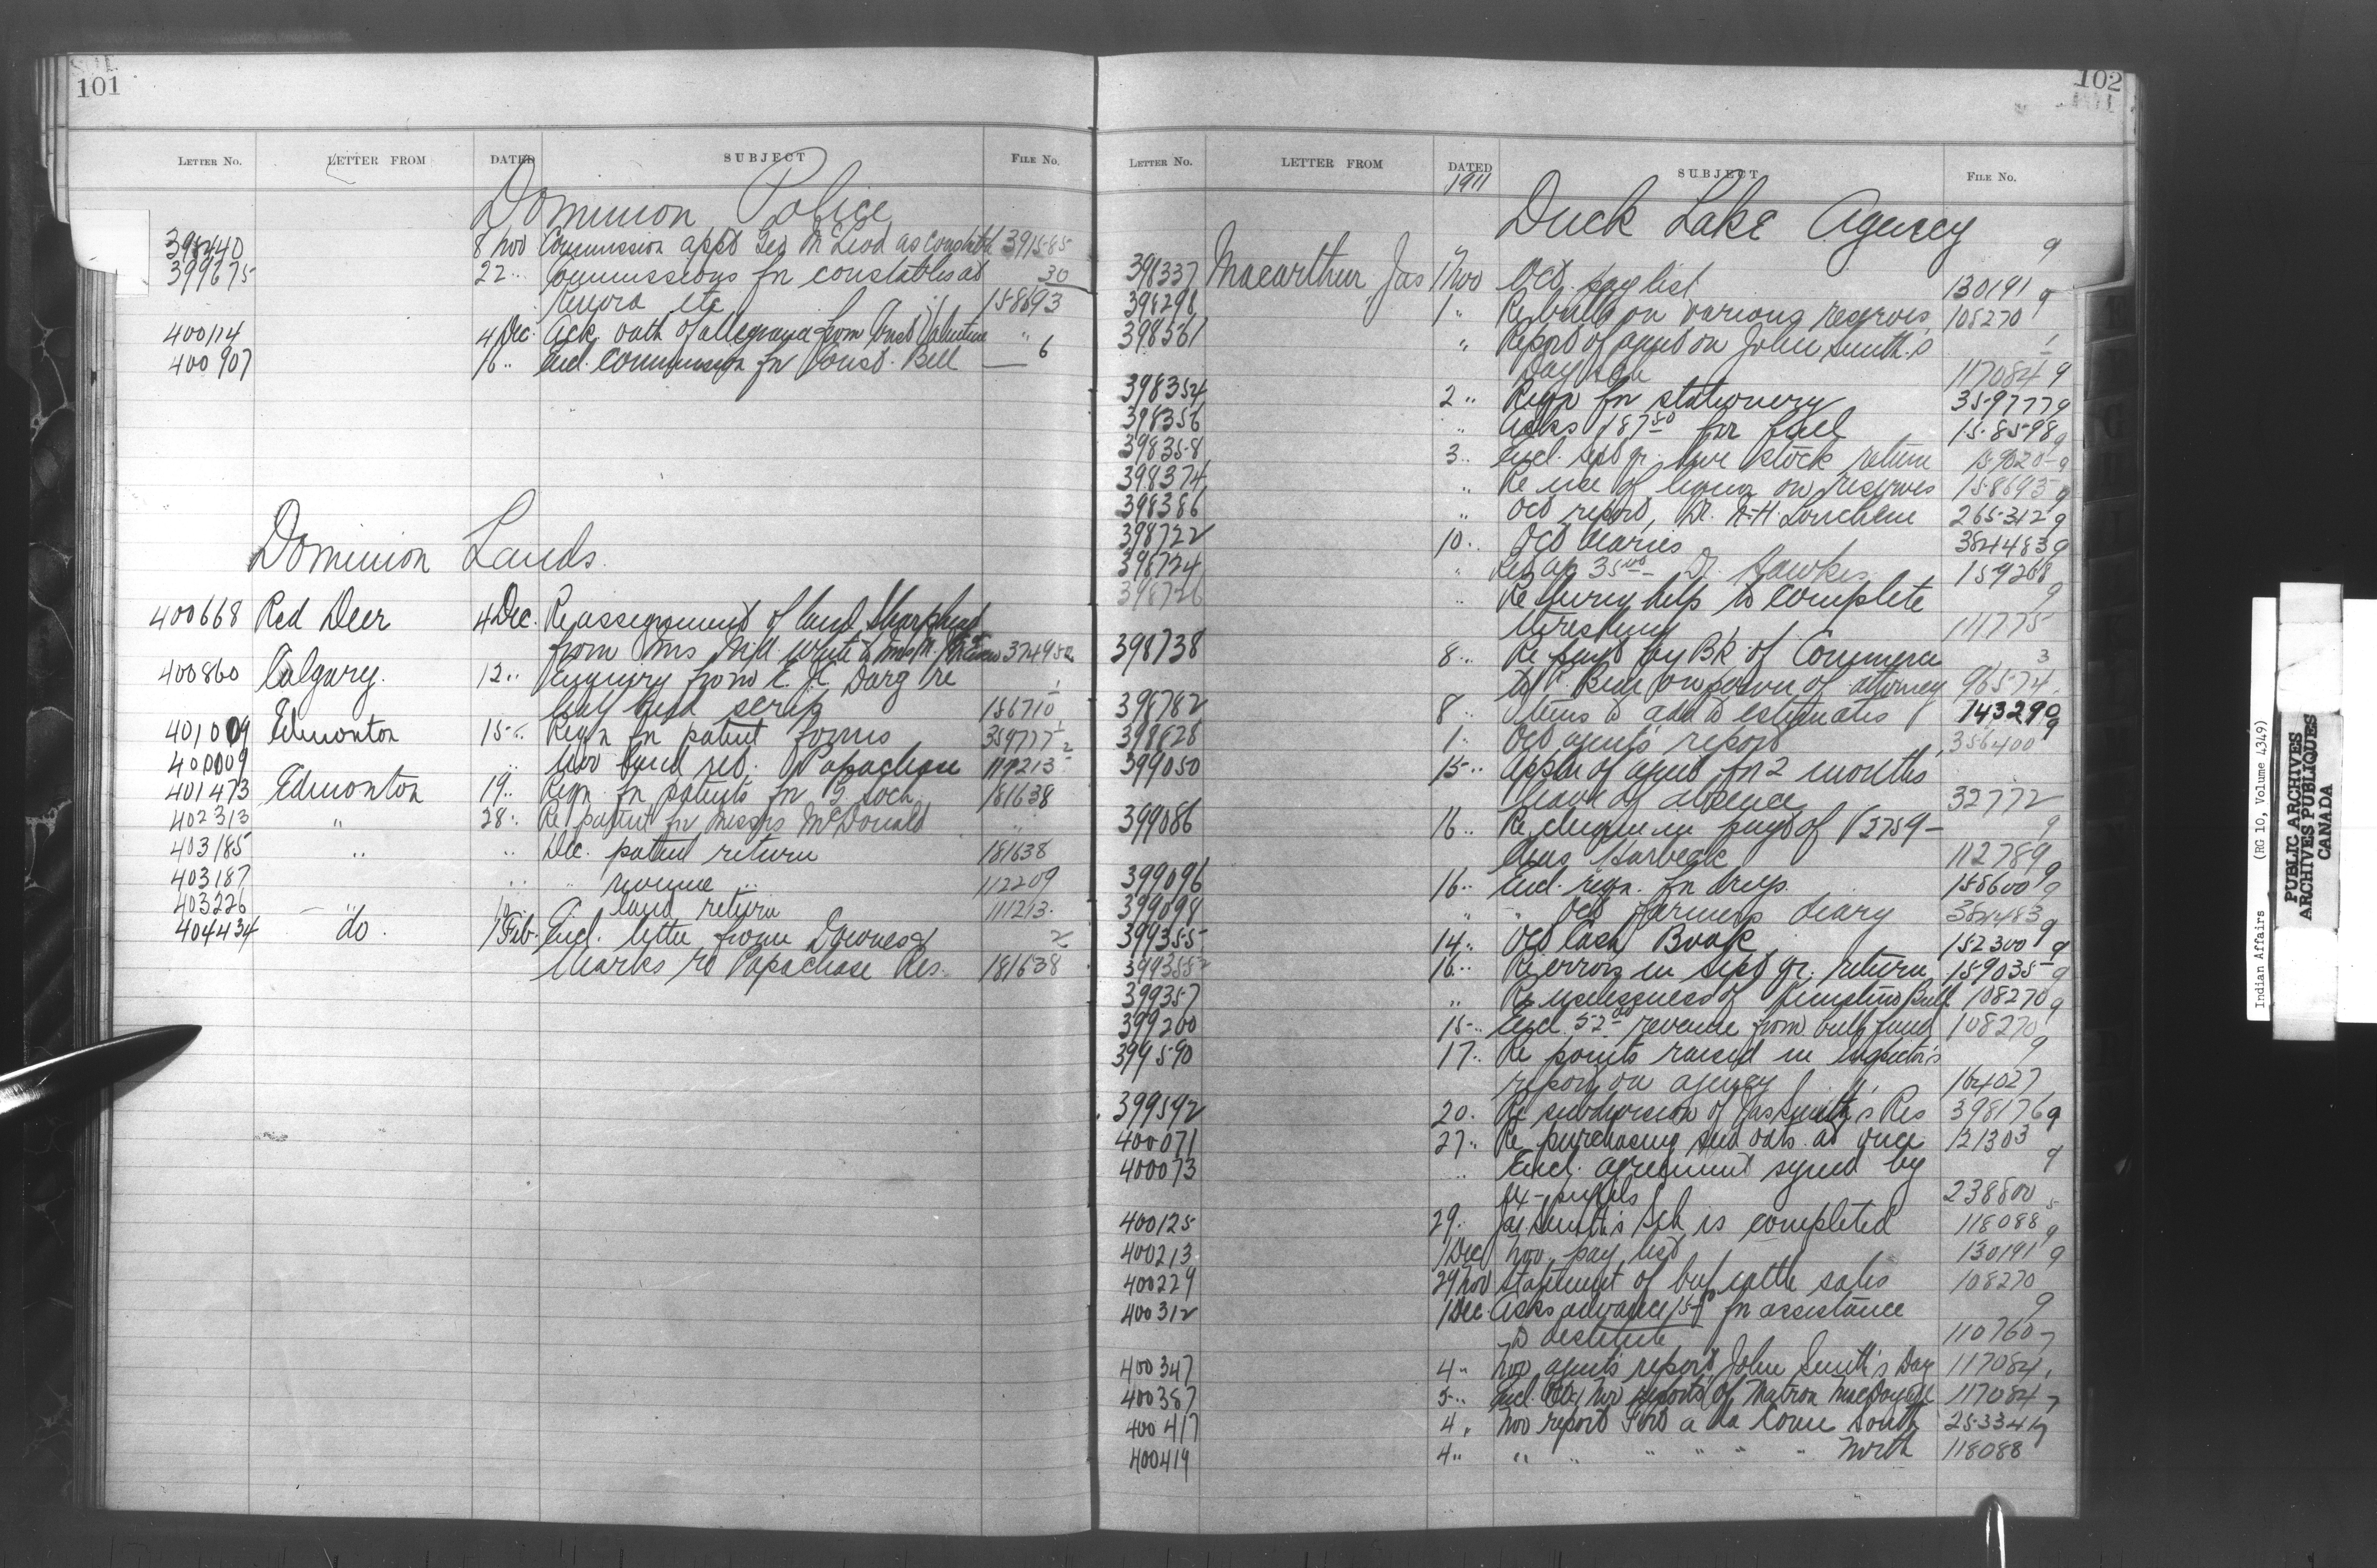 101
LETTER NO. LETTER FROM DATED SUBJECT FILE No.
Dominion Police
398440 8 Nov Commission appt Geo McLeod as Constable 391585
399675 22 " Commissions for constables at 30
Kenora etc 158693
400114 4 Dec. Ack. oath of allegiance from Const Valentine "
400907 16 " Encl. commission for Const. Bell — 6
Dominion Lands.
400668 Red Deer 4 Dec. Re assignment of land Sharphead
from Mrs White to Mrs M. 374950
400860 Calgary. 12 " Enquiry from E. H. Darg re
half breed scrip 156710
401009 Edmonton 15 " Reqn for patent forms 359777
400009 " Nov land ret. Papachase 111213
401473 Edmonton 19 " Reqn. for patents for 2 Soch. 181638
402313 " 28 " Re patent for Messrs McDonald "
403185 " " Dec. patent return 181638
403187 " " revenue " 112209
403226 " " land return 111213
404434 do. 7 Feb. Encl. letter from Downes & 2
Marks re Papachase Res. 181638
102
LETTER NO. LETTER FROM DATED SUBJECT FILE No.
1911
Duck Lake Agency
398337 Macarthur Jas 1 Nov Oct. pay list 130191 9
398298 " 1 " Re bulls on various reserves 108270 9
398561 " Report of agent on John Smith's
Day Sch 117084 9
398354 2 " Reqn for stationery 359777 9
398356 " Asks 187 50 for fuel 158598 9
398358 3 " Encl. Sept qr. live stock return 159020 9
398374 " Re use of liquor on reserves 158693 9
398386 " Oct report, Dr. 265312 9
398722 10 " Oct diaries 384483 9
398724 " Re ap 35 00 Dr. Hawkes 159208
398726 " Re hiring help to complete 9
threshing 111775
398738 8 " Re payt by Bk of Commerce 3
to on power of attorney 96574
398782 8 " Items to add to estimates 143290
398828 1 " Oct agent's report 356400 9
399050 15 " Appln of agent for 2 months
leave of absence 32772
399086 16 " Re cheque in payt of V2759 — 9
Chas 112789
399096 16 " Encl. reqn. for drugs. 158600 9
399098 " " Oct farmers diary 384483 9
399355 14 " Oct Cash Book 152300 9
399355 2 16 " Re errors in Sept qr. return 159035 9
399357 " Re uselessness of Bull 108270 9
399200 15 " Encl. 52 revenue from bull fund 108270
399590 17 " Re points raised in Inspector's 9
report on agency 164027
399592 20. Re subdivision of Jas Smith's Res 398176 9
400071 27 " Re purchasing seed oats at once 121303
400073 " Encl. agreement signed by 9
ex-pupils 238800
400125 29. Jas. Smith's Sch is completed 118088 9
400213 1 Dec Nov. pay list 130191 9
400229 29 Nov Statement of beef cattle sales 108270
400312 1 Dec. Asks advance 15 for assistance 9
to destitute 110760
400347 4 " Nov agent's report John Smith's Day 117084
400387 5 " Encl. Oct & Nov reports of Matron 117084
400417 4 " Nov report Fort a la Corne South 253341
400419 4 " " " " " " " North 118088
Indian Affairs (RG 10, Volume 4349)
PUBLIC ARCHIVES
ARCHIVES PUBLIQUES
CANADA